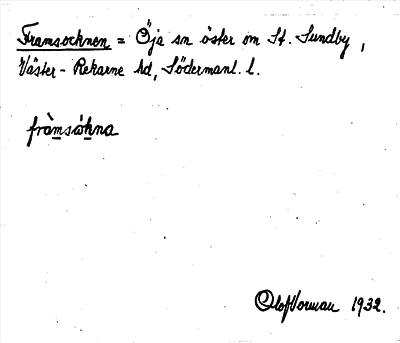 Framsocknen = Öja sn öster om St. Sundby,
Väster-Rekarne hd, Södermanl. l.
framsåkna
Olof Vorman 1932.